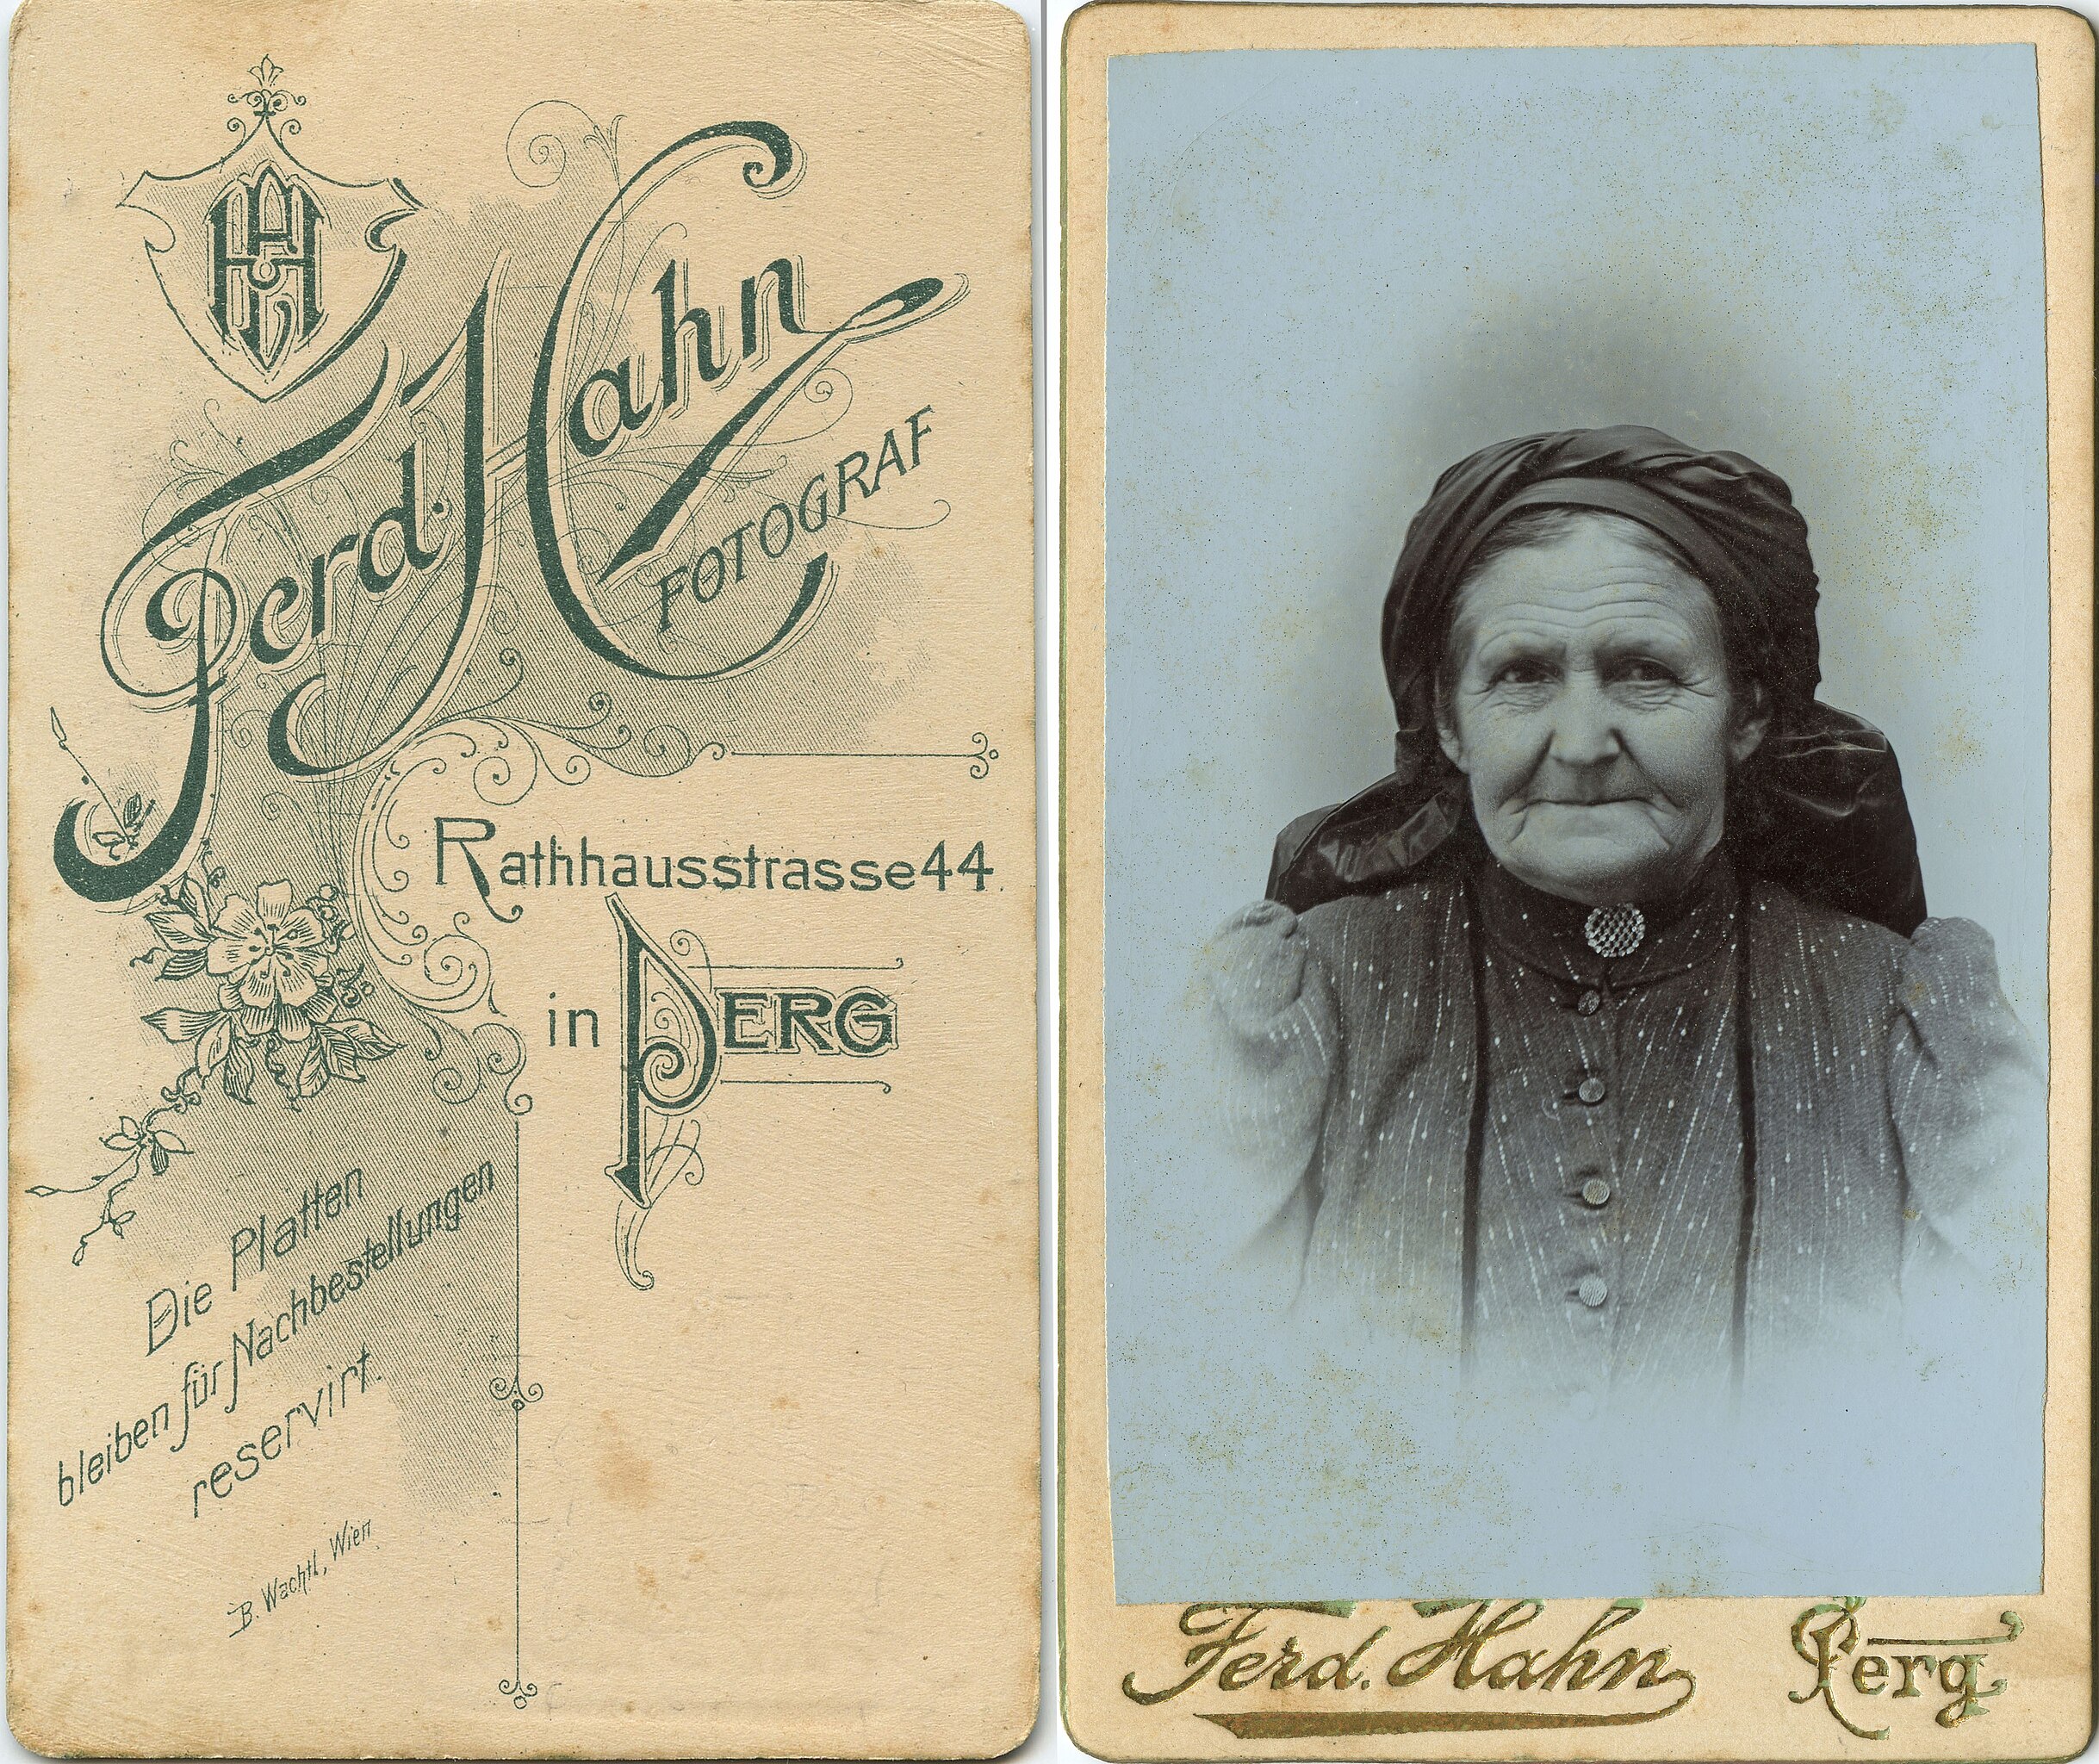 Ferd. Hahn
FOTOGRAF
Rathhausstrasse 44.
in PERG
Die Platten
bleiben für Nachbestellungen
reservirt.
B. Wachtl, Wien.
Ferd. Hahn Perg.